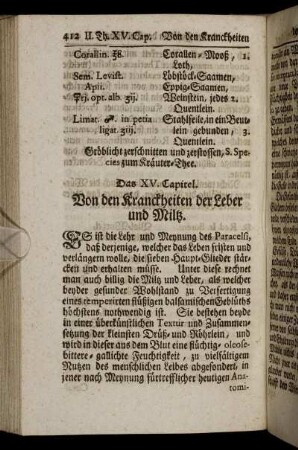 412 II. Th. XV. Cap. Von den Kranckheiten
Corallin. ℥ß. Corallen-Mooß, 1.
Loth,
Sem. Levist. Löbstöck-Saamen,
Apii. Eppig-Saamen,
Tri. opt. alb. ʒij. Weinstein, jedes 2.
Quentlein.
Limat. ♂. in petia Stahlfeile in ein Beu-
ligat. ʒiij. lein gebunden, 3.
Quentlein.
Gröblicht zerschnitten und zerstossen, S. Spe-
cies zum Kräuter-Thee.
Das XV. Capitel.
Von den Kranckheiten der Leber
und Miltz.
ES ist die Lehr und Meynung des Paracelsi,
daß derjenige, welcher das Leben fristen und
verlängern wolle, die sieben Haupt-Glieder stär-
cken und erhalten müsse. Unter diese rechnet
man auch billig die Miltz und Leber, als welcher
beyder gesunder Wohlstand zu Verfertigung
eines temperirten flüßigen balsamischen Geblüths
höchstens nothwendig ist. Sie bestehen beyde
in einer überkünstlichen Textur und Zusammen-
setzung der kleinsten Drüß- und Röhrlein, und
wird in dieser aus dem Blut eine flüchtig-oleose-
bittere-gallichte Feuchtigkeit, zu vielfältigem
Nutzen des menschlichen Leibes abgesondert, in
jener nach Meynung fürtrefflicher heutigen Ana-
tomi-